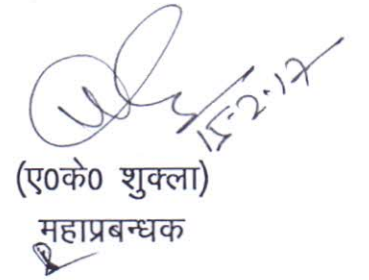 15.2.17
(ए0के0 शुक्ला)
महाप्रबन्धक